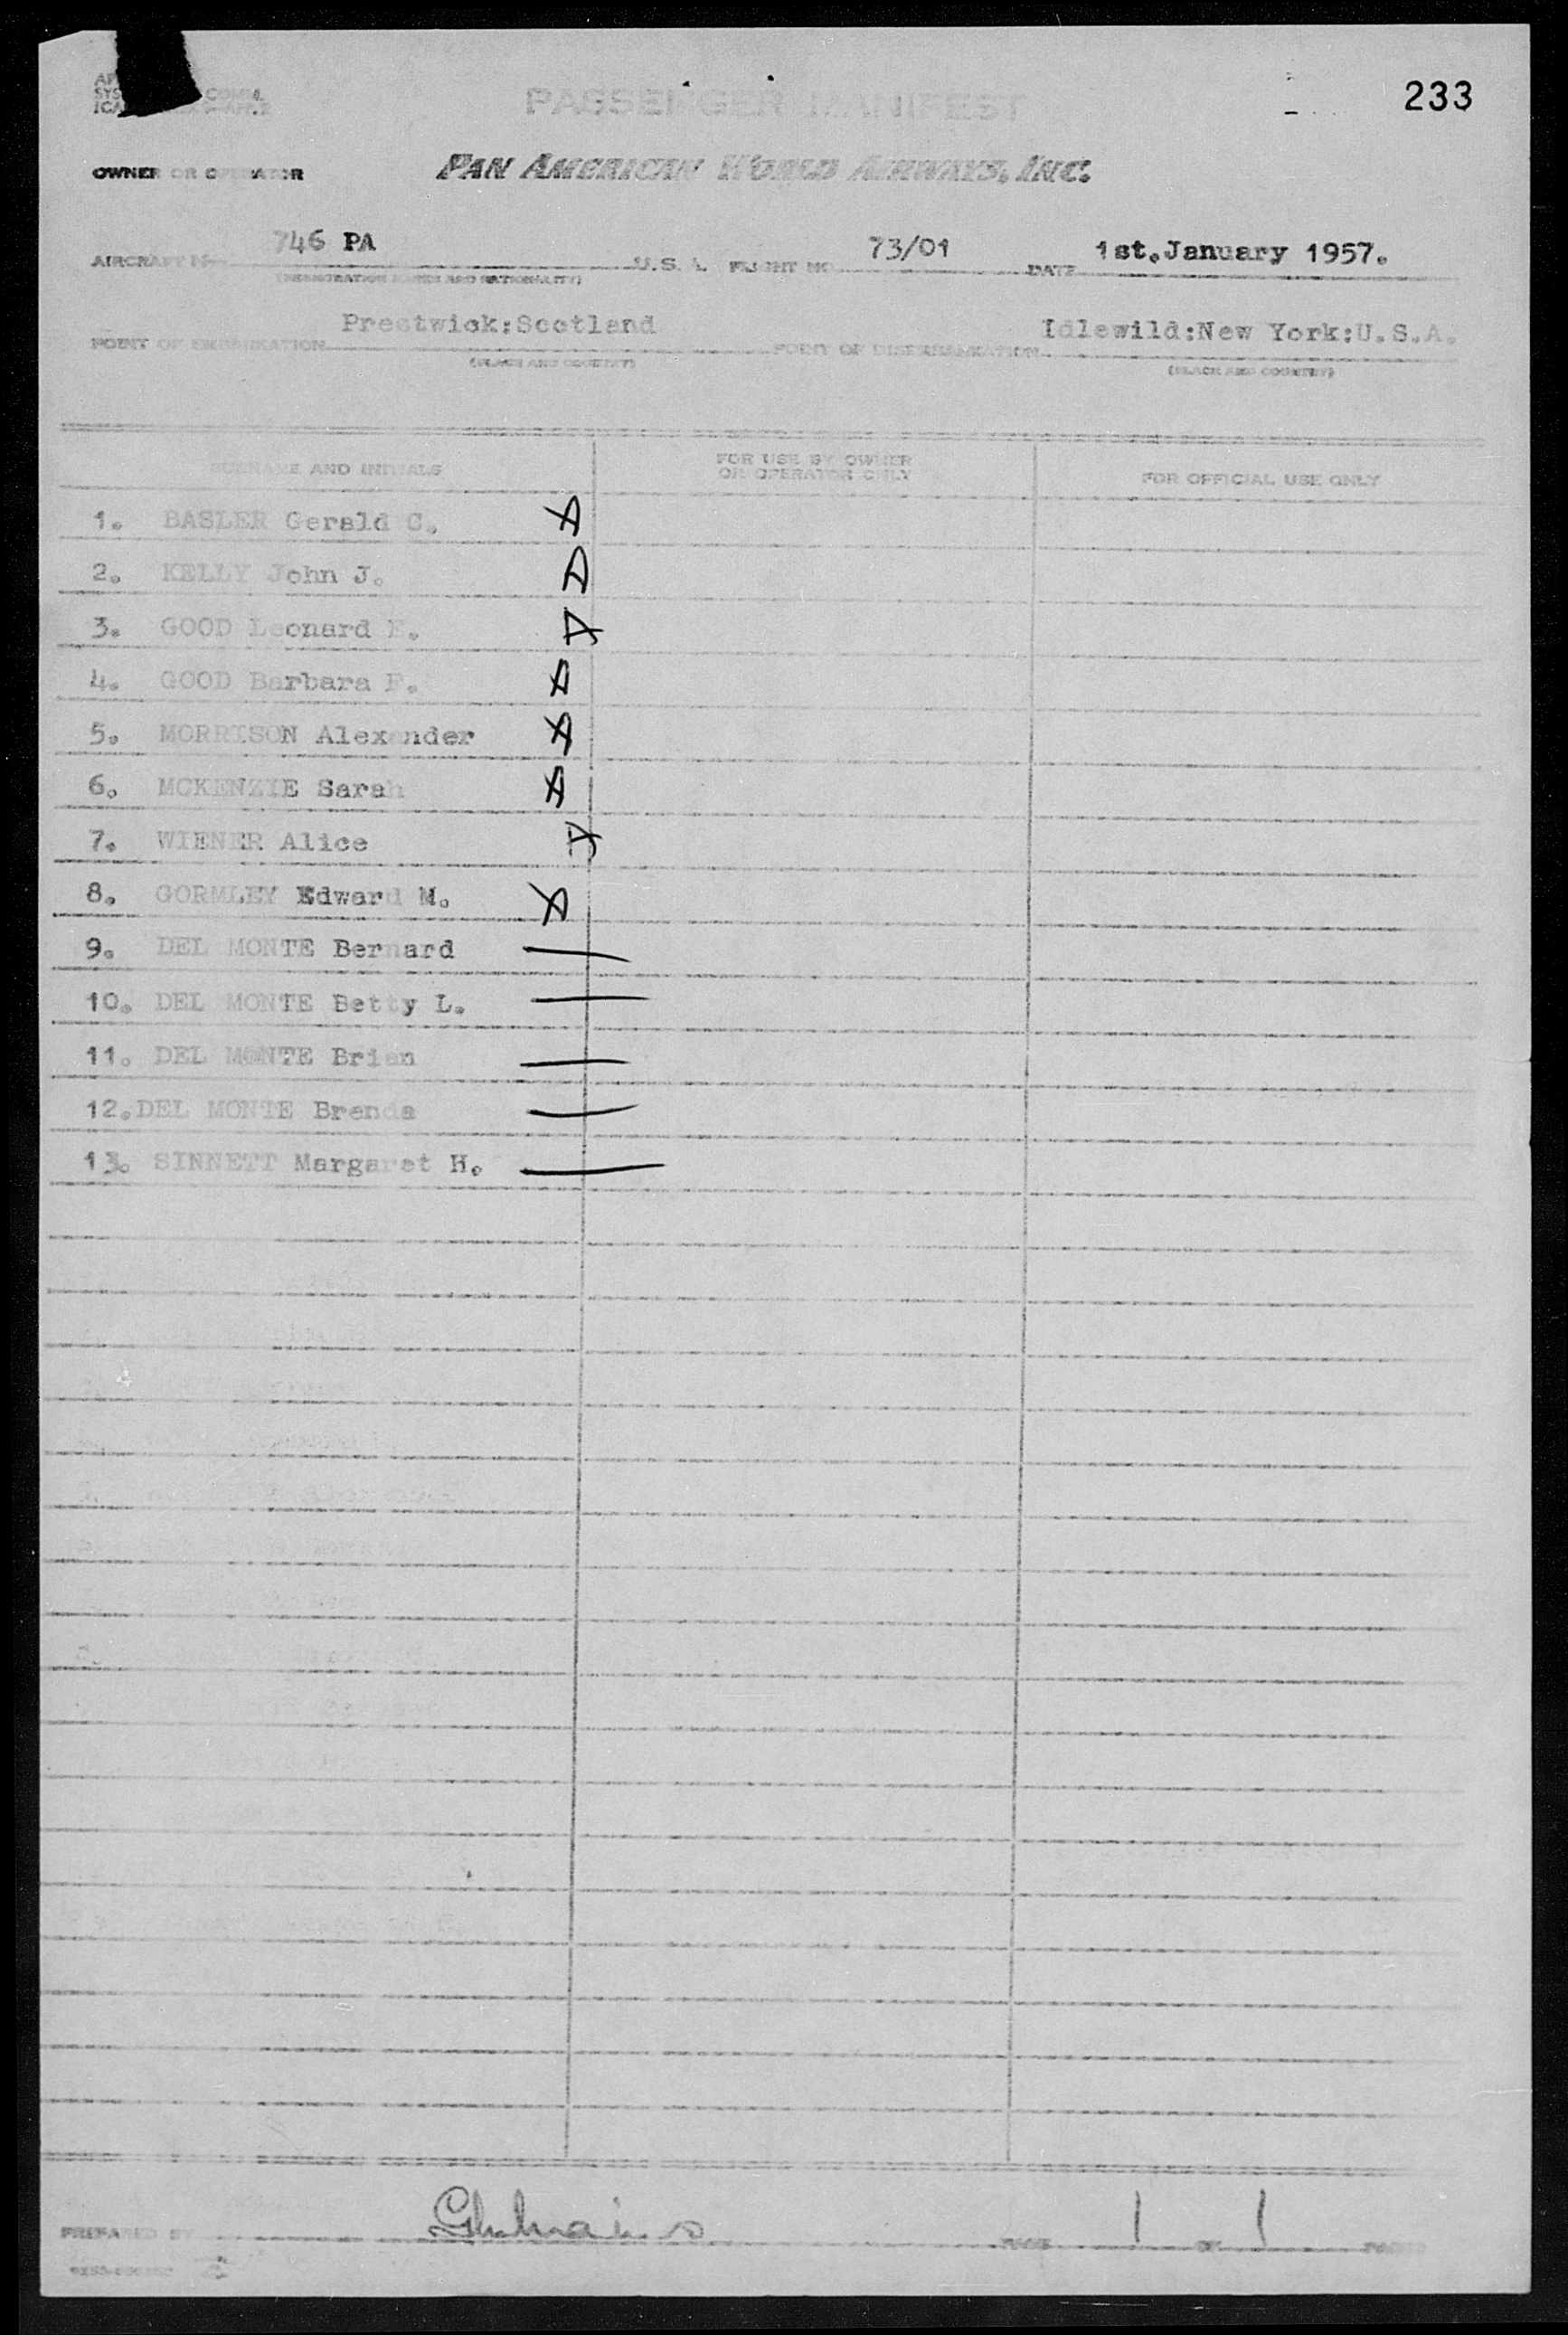 233
PASSENGER MANIFEST
OWNER OR OPERATOR PAN AMERICAN WORLD AIRWAYS, INC.
AIRCRAFT 746 PA U.S.A. FLIGHT NO. 73/01 DATE 1st.January 1957.
(REGISTRATION MARKS AND NATIONALITY)
POINT OF EMBARKATION Prestwick:Scotland POINT OF DISEMBARKATION Idlewild:New York:U.S.A.
(PLACE AND COUNTRY) (PLACE AND COUNTRY)
SURNAME AND INITIALS
FOR USE BY OWNER
OR OPERATOR ONLY
FOR OFFICIAL USE ONLY
1. BASLER Gerald C.
2. KELLY John J.
3. GOOD Leonard E.
4. GOOD Barbara F.
5. MORRISON Alexander
6. MCKENZIE Sarah
7. WIENER Alice
8. GORMLEY Edward M.
9. DEL MONTE Bernard
10. DEL MONTE Betty L.
11. DEL MONTE Brian
12. DEL MONTE Brenda
13. SINNETT Margaret H.
PREPARED BY PAGE 1 OF 1 PAGES